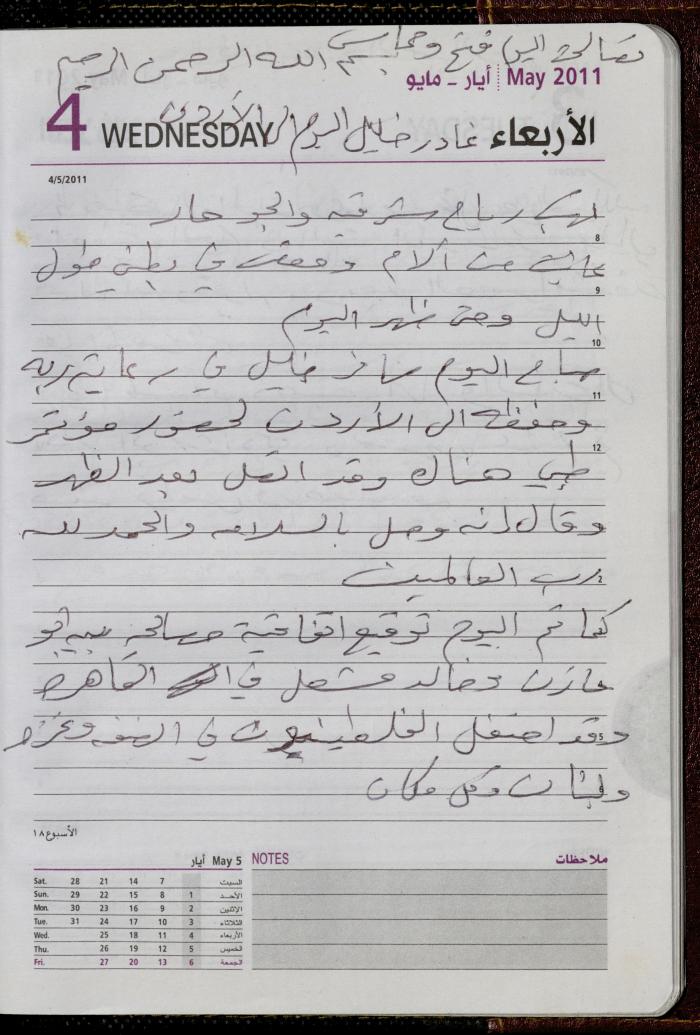 تصالح اليوم فتح وحماس
بسم الله الرحمن الرحيم
أيار - مايو May 2011
4 WEDNESDAY الأربعاء
غادر خليل اليوم الى الأردن
4/5/2011
هبت رياح شرقيه والجو حار
8
عانيت من آلام ومغص في بطني طول
9
الليل وحتى ظهر اليوم
10
صباح اليوم سافر خليل في رعاية ربه
11
وحفظه الى الأردن لحضور مؤتمر
12
طبي هناك وقد اتصل بعد الظهر
وقال إنه وصل بالسلامه والحمد لله
2
رب العالمين
كما تم اليوم توقيع اتفاقية مصالحه بين ابو
مازن وخالد مشعل في القاهره
5
وقد احتفل الفلسطينيون في الضفه وغزه
ولبنان وكل مكان
الأسبوع ١٨
May 5 أيار
Sat. 28 21 14 7 السبت
Sun. 29 22 15 8 1 الأحد
Mon. 30 23 16 9 2 الإثنين
Tue. 31 24 17 10 3 الثلاثاء
Wed. 25 18 11 4 الأربعاء
Thu. 26 19 12 5 الخميس
Fri. 27 20 13 6 الجمعة
NOTES ملاحظات